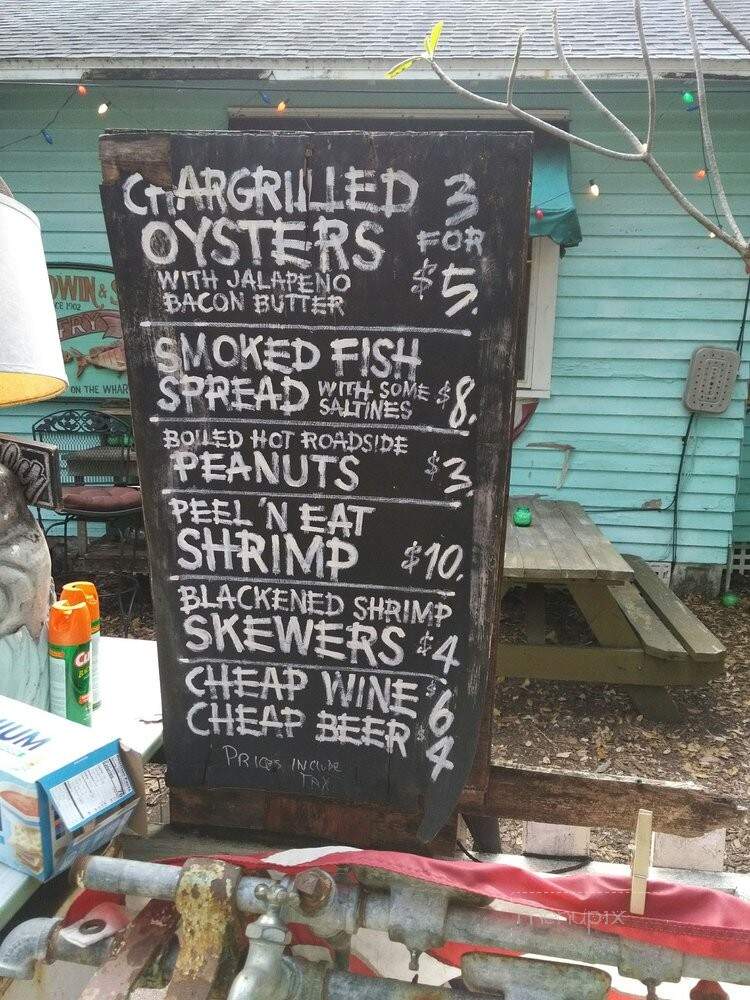 CHARGRILLED 3
OYSTERS FOR
WITH JALAPENO $5.
BACON BUTTER
SMOKED FISH
SPREAD WITH SOME $8.
SALTINES
BOILED HOT ROADSIDE
PEANUTS $3.
PEEL 'N EAT
SHRIMP $10.
BLACKENED SHRIMP
SKEWERS $4
CHEAP WINE $6
CHEAP BEER $4
PRICES INCLUDE
TAX
WIN & S
CE 1902
FRY
ON THE WHAR
IUM
menupix